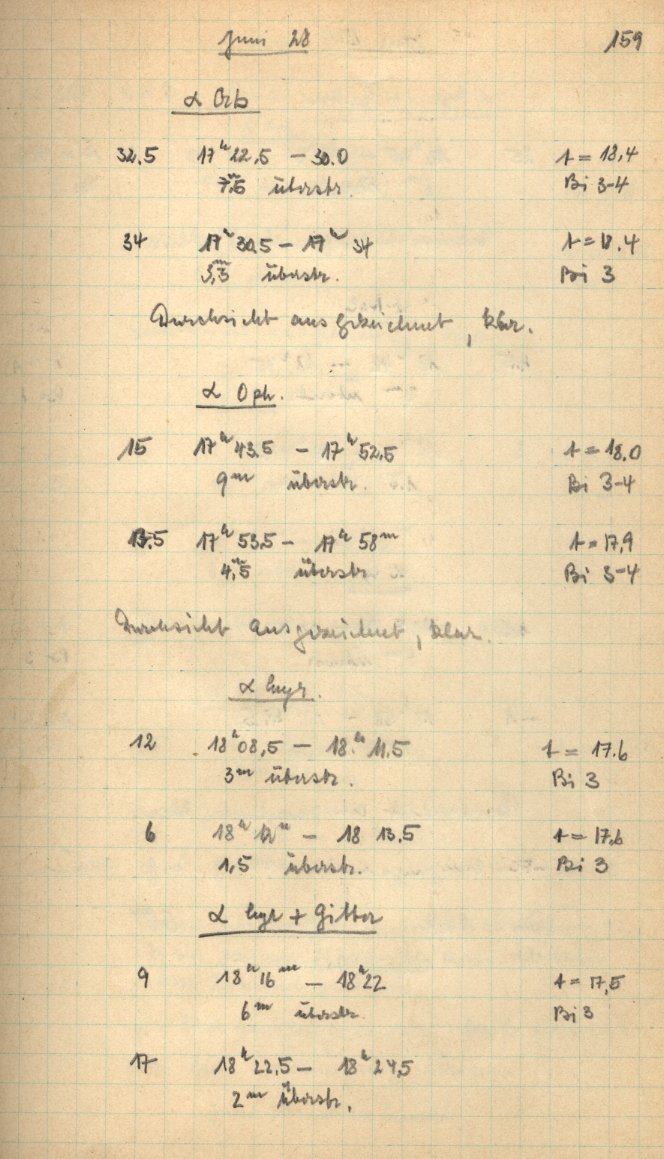 Juni 28 159
α Orb
32.5 17ʰ 22,5 – 30.0 t = 18,4
7,5ᵐ überstr. Bi 3-4
34 17ʰ 30,5 – 17ʰ 34 t = 18.4
3,5ᵐ überstr. Bi 3
Durchsicht ausgezeichnet, klar.
α Oph.
15 17ʰ 43.5 – 17ʰ 52,5 t = 18.0
9ᵐ überstr. Bi 3-4
13.5 17ʰ 53.5 – 17ʰ 58ᵐ t = 17,9
4,5ᵐ überstr Bi 3-4
Durchsicht ausgezeichnet, klar.
α Lyr.
12 18ʰ 08,5 – 18ʰ 11.5 t = 17.6
3ᵐ überstr. Bi 3
6 18ʰ 12ᵐ – 18 13.5 t = 17,6
1,5 überstr. Bi 3
α Lyr + Gitter
9 18ʰ 16ᵐ – 18ʰ 22 t = 17,5
6ᵐ überstr. Bi 3
17 18ʰ 22.5 – 18ʰ 24,5
2ᵐ überstr.